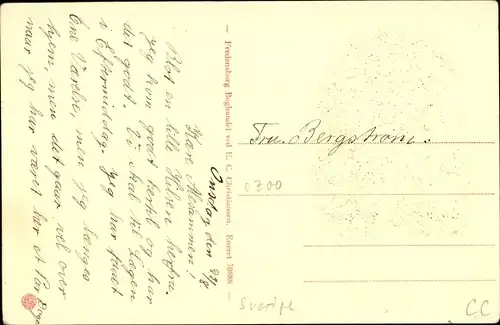 Onsdag den 27/8
Kære Allesammen!
Blot en lille Hilsen herfra.
jeg kom godt hertil og har
det godt. Vi skal til Lægen
i Eftermiddag. jeg har faaet
Ene Værelse, men jeg længes
hjem, men det gaar vel over
naar jeg har været her et Par Dage
— Fredensborg Boghandel ved E. C. Christiansen. Eneret 70888 —
Fru. Bergstrøm.
0700
Sverige
CC